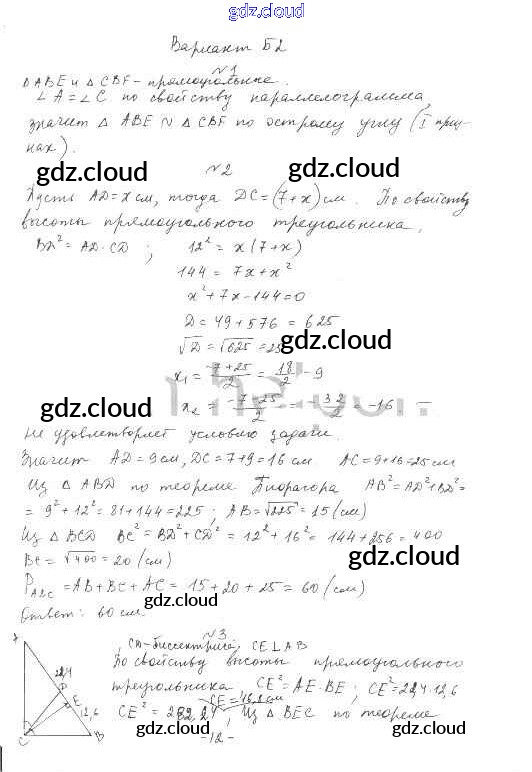 gdz.cloud
Вариант Б2
№1
△ABE и △CBF - прямоугольные.
∠A = ∠C по свойству параллелограмма,
значит △ABE ∾ △CBF по острому углу (I приз-
нак).
gdz.cloud
gdz.cloud
№2
Пусть AD = x см, тогда DC = (7+x) см. По свойству
высоты прямоугольного треугольника,
BD² = AD·CD ; 12² = x(7+x)
144 = 7x + x²
x² + 7x - 144 = 0
D = 49 + 576 = 625
√D = √625 = 25
gdz.cloud
x₁ = (-7+25)/2 = 18/2 - 9
gdz.cloud
x₂ = (-7-25)/2 = -32/2 = -16 —
не удовлетворяет условию задачи.
Значит AD = 9 см, DC = 7+9 = 16 см AC = 9+16 = 25 см
Из △ABD по теореме Пифагора AB² = AD² + BD² =
= 9² + 12² = 81 + 144 = 225 ; AB = √225 = 15 (см)
Из △BCD BC² = BD² + CD² = 12² + 16² = 144 + 256 = 400
BC = √400 = 20 (см)
gdz.cloud
gdz.cloud
P ABC = AB + BC + AC = 15 + 20 + 25 = 60 (см)
gdz.cloud
Ответ: 60 см.
№3
, CD - биссектриса, CE ⊥ AB
По свойству высоты прямоугольного
треугольника CE² = AE·BE ; CE² = 22,4·12,6
CE = 16,8 см
CE² = 282,24 , Из △BEC по теореме
22,4
D
E
12,6
C
B
gdz.cloud
-12-
gdz.cloud